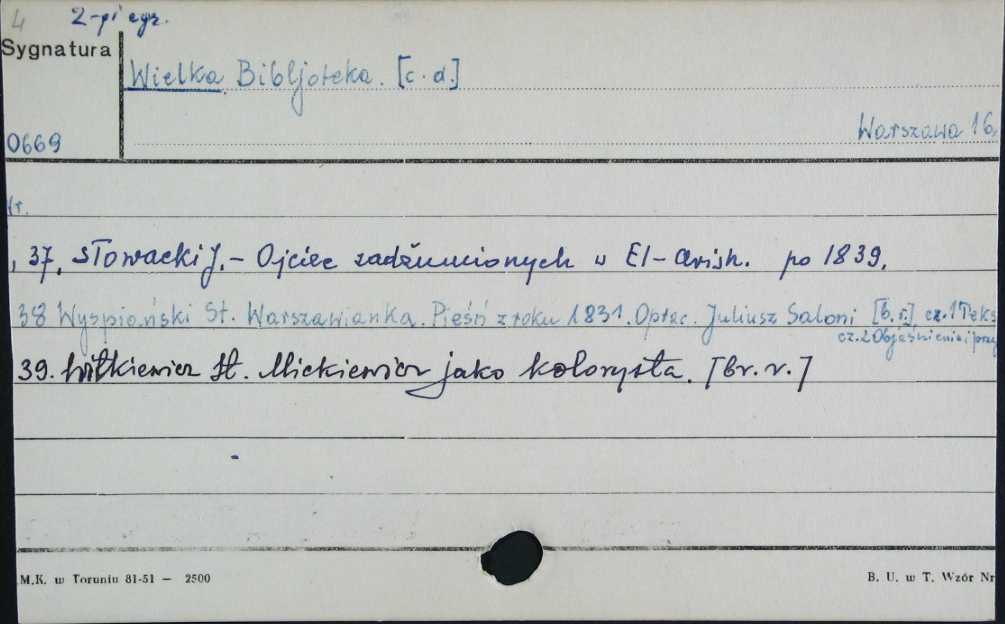 4 2-gi egz.
Sygnatura
Wielka Bibljoteka. [c.d.]
0669 Warszawa 16,
Nr.
, 37, Słowacki J. - Ojciec zadżumionych w El-Arish. po 1839,
38 Wyspiański St. Warszawianka. Pieśń z roku 1831. Oprac. Juliusz Saloni [b.r.] cz. 1 Teks
cz. 2 Objaśnienia i przy
39. Witkiewicz St. Mickiewicz jako kolorysta. [br. r.]
M.K. w Toruniu 81-51 — 2500
B. U. w T. Wzór Nr